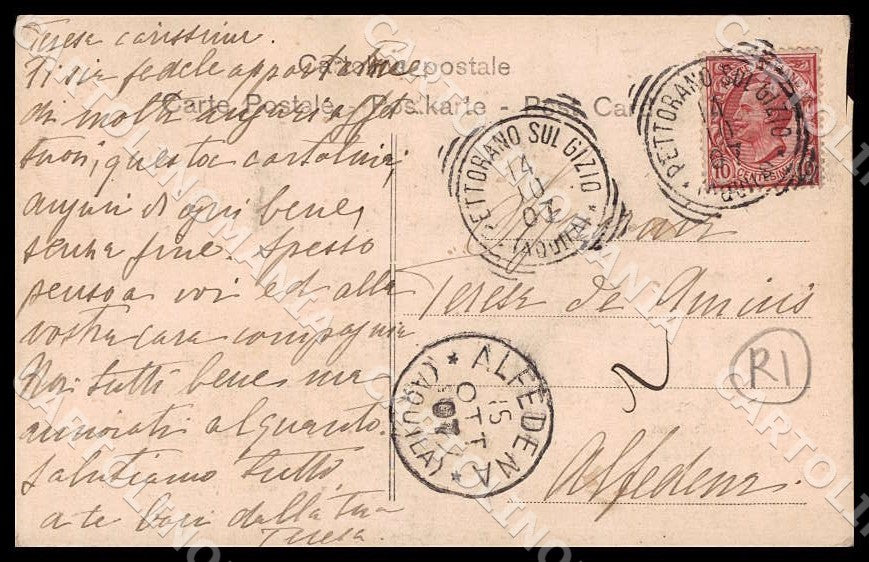 Teresa carissima.
Ti sia fedele apportatrice
di molti auguri
tuoi, questa cartolina,
auguri di ogni bene,
senza fine. Spesso
penso a voi ed alla
vostra cara compagnia
Noi tutti bene ma
annoiati alquanto.
Salutiamo tutti
a te baci dalla tua
Teresa.
Cartolina postale
Carte Postale - Postkarte - Post Car
PETTORANO SUL GIZIO
14
10
07
(AQUILA)
PETTORANO SUL GIZIO
(AQUILA)
10 CENTESIMI 10
Teresa de Amicis
Alfedena
ALFEDENA
15
OTT
07
(AQUILA)
R1
CARTOLINOMANIA